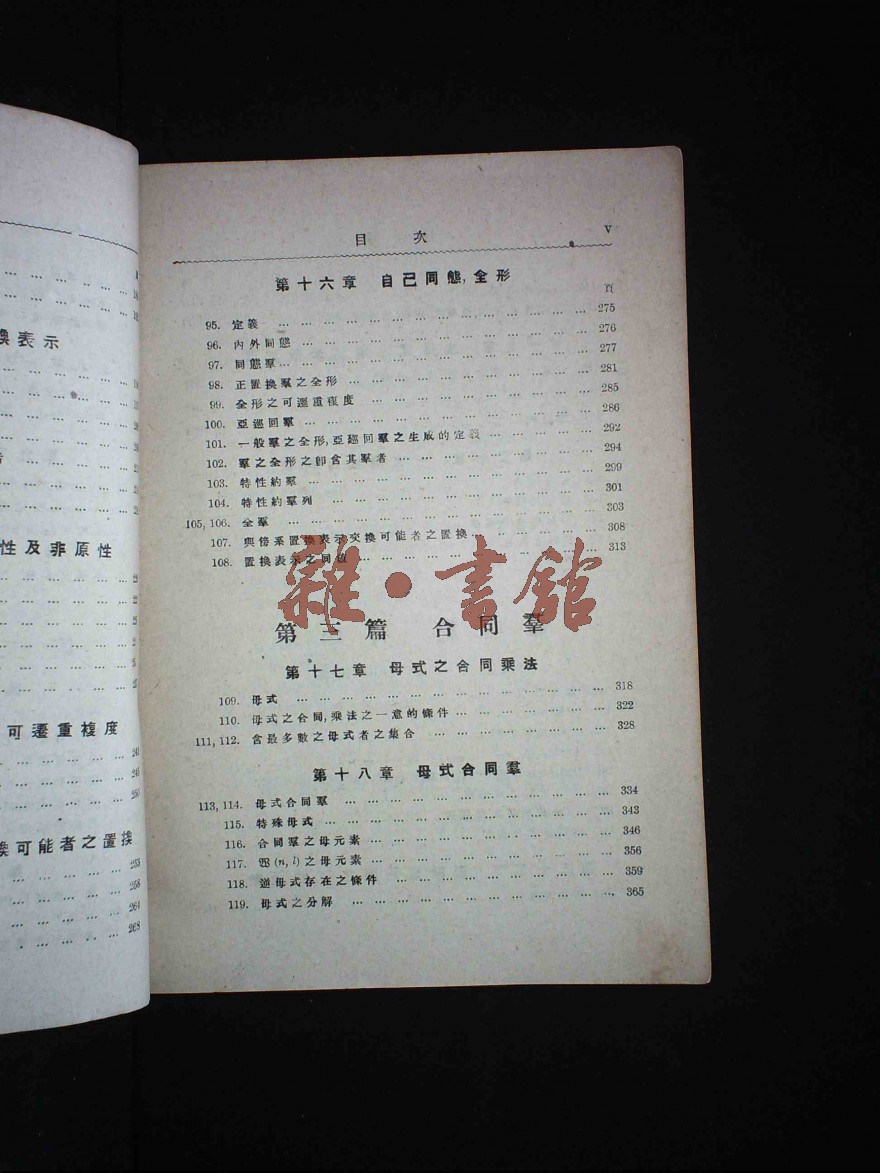 換表示
性及非原性
可遷重複度
換可能者之置換
253
258
264
268
目次 V
第十六章 自己同態,全形
頁
95. 定義 … … … … … … … … … … … … … … … 275
96. 內外同態 … … … … … … … … … … … … … 276
97. 同態羣 … … … … … … … … … … … … … … 277
98. 正置換羣之全形 … … … … … … … … … … … 281
99. 全形之可遷重複度 … … … … … … … … … … 285
100. 亞巡回羣 … … … … … … … … … … … … … 286
101. 一般羣之全形,亞巡回羣之生成的定義 … … … … … 292
102. 羣之全形之卽含其羣者 … … … … … … … … … 294
103. 特性約羣 … … … … … … … … … … … … … 299
104. 特性約羣列 … … … … … … … … … … … … 301
105, 106. 全羣 … … … … … … … … … … … … … … 303
107. 與傍系置換表示交換可能者之置換 … … … … … … 308
108. 置換表示之同值 … … … … … … … … … … … 313
雜·書館
第三篇 合同羣
第十七章 母式之合同乘法
109. 母式 … … … … … … … … … … … … … … 318
110. 母式之合同,乘法之一意的條件 … … … … … … … 322
111, 112. 含最多數之母式者之集合 … … … … … … … … 328
第十八章 母式合同羣
113, 114. 母式合同羣 … … … … … … … … … … … … 334
115. 特殊母式 … … … … … … … … … … … … … 343
116. 合同羣之母元素 … … … … … … … … … … … 346
117. (n, l) 之母元素 … … … … … … … … … … … 356
118. 逆母式存在之條件 … … … … … … … … … … 359
119. 母式之分解 … … … … … … … … … … … … 365